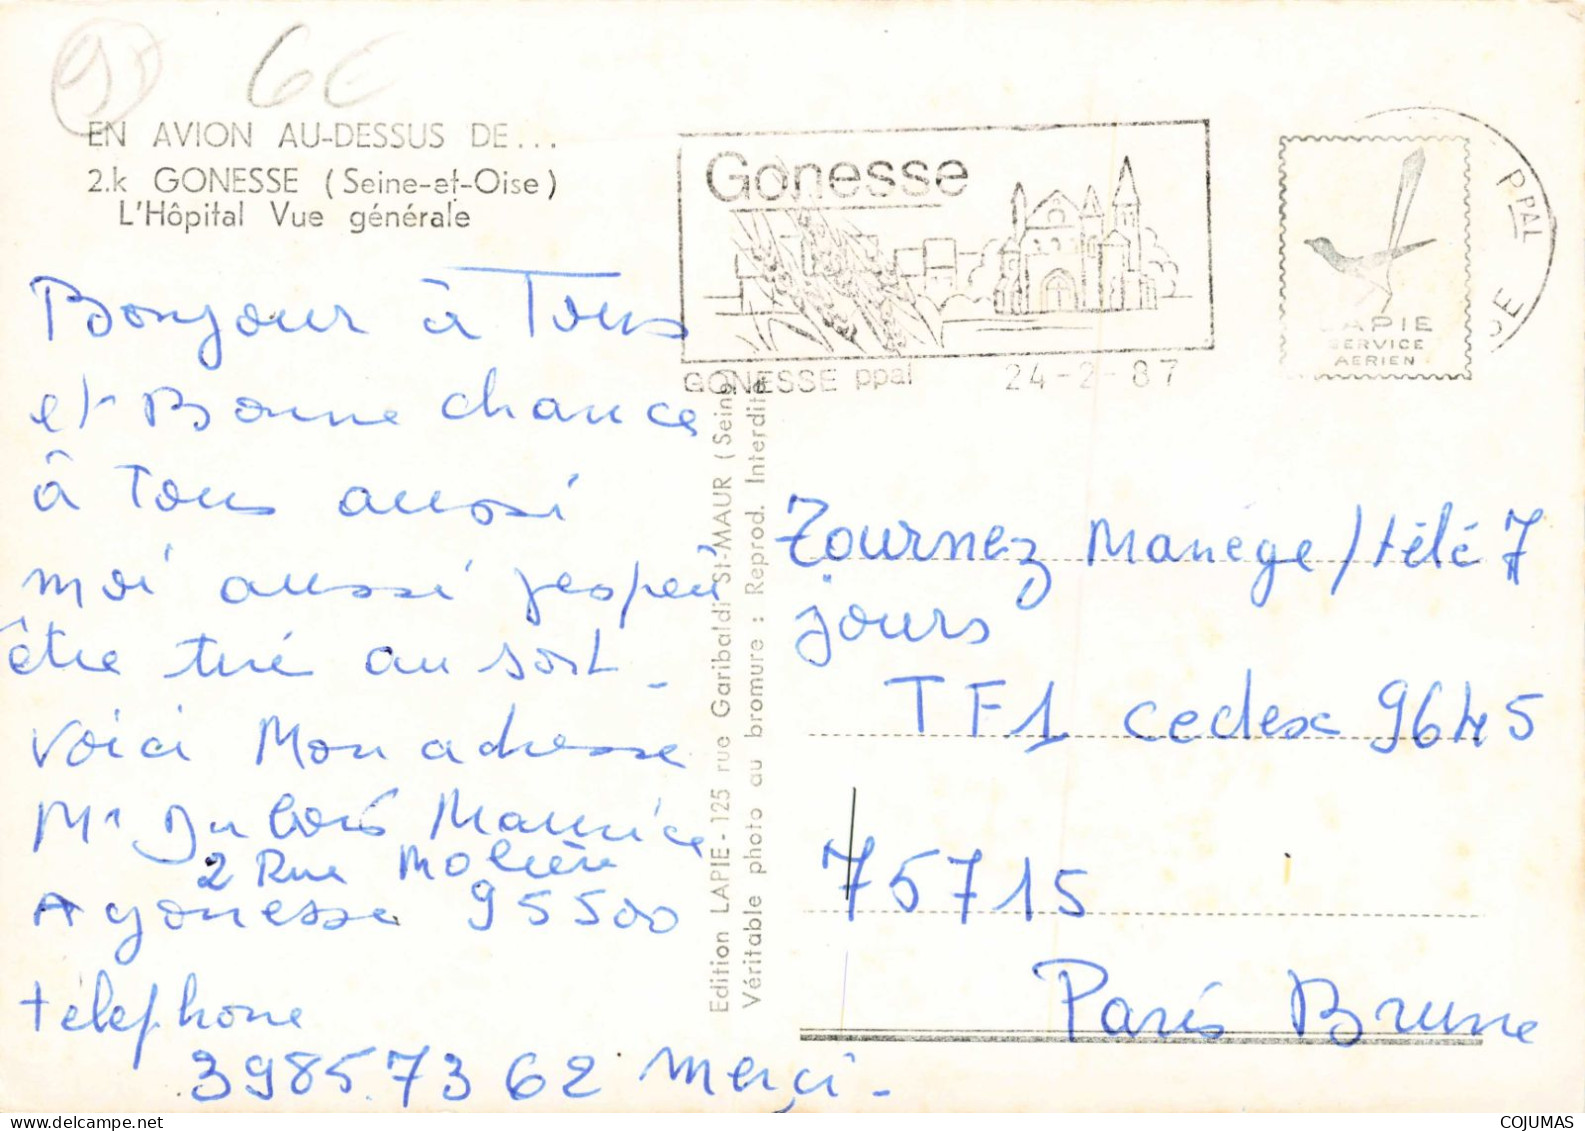 95 6€
EN AVION AU-DESSUS DE...
2.k GONESSE (Seine-et-Oise)
L'Hôpital Vue générale
Gonesse
GONESSE ppal 24-2-87
PPAL
LAPIE
SERVICE
AERIEN
Bonjour à Tous
et Bonne chance
à Tous aussi
moi aussi jespeir
être tiré au sort_
voici Mon adresse
Mr Dubois Maurice
2 Rue Molière
A gonesse 95500
téléphone
39857362 merçi_
Edition LAPIE - 125 rue Garibaldi St-MAUR (Seine)
Véritable photo au bromure : Reprod. Interdite
Tournez Manège/télé 7
jours
TF1 cedex 9645
75715
Paris Brune
COJUMAS